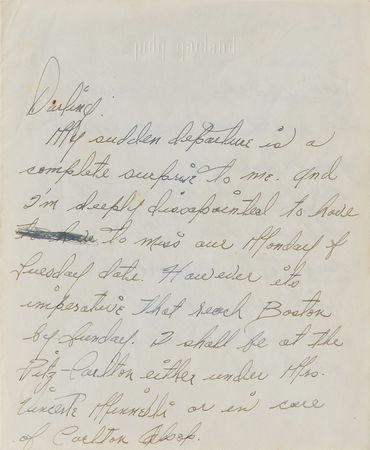 Darling:
My sudden departure is a
complete surprise to me. And
I'm deeply disappointed to have
to miss our Monday &
Tuesday date. However its
imperative that reach Boston
by Sunday. I shall be at the
Ritz-Carlton either under Mrs.
Vincente Minnelli or in care
of Carlton Alsop.